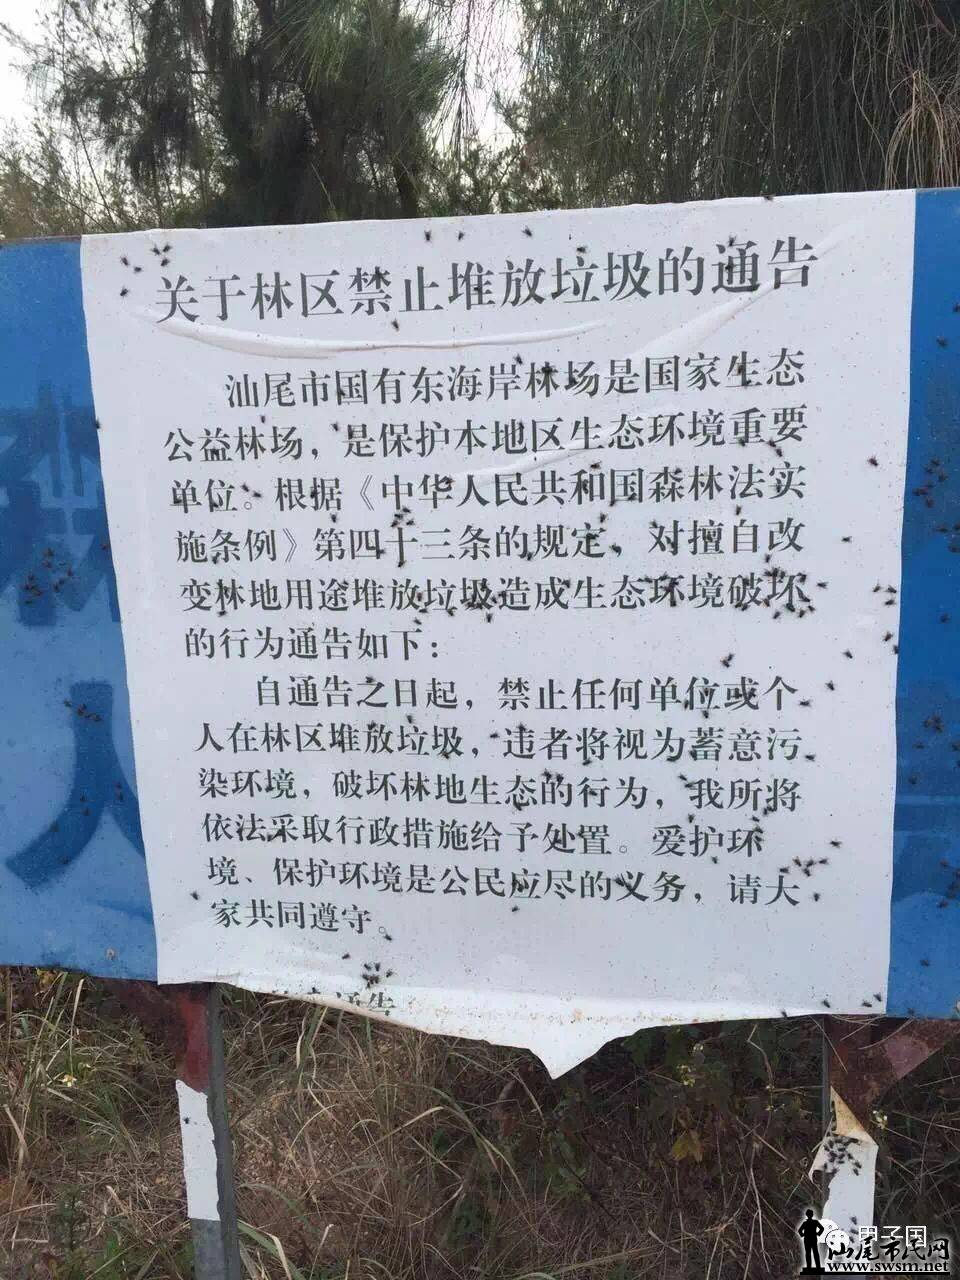 关于林区禁止堆放垃圾的通告
汕尾市国有东海岸林场是国家生态
公益林场，是保护本地区生态环境重要
单位。根据《中华人民共和国森林法实
施条例》第四十三条的规定、对擅自改
变林地用途堆放垃圾造成生态环境破坏
的行为通告如下：
自通告之日起，禁止任何单位或个
人在林区堆放垃圾，违者将视为蓄意污
染环境，破坏林地生态的行为，我所将
依法采取行政措施给予处置。爱护环
境、保护环境是公民应尽的义务，请大
家共同遵守。
通告
林
人
甲子国
汕尾市民网
www.swsm.net